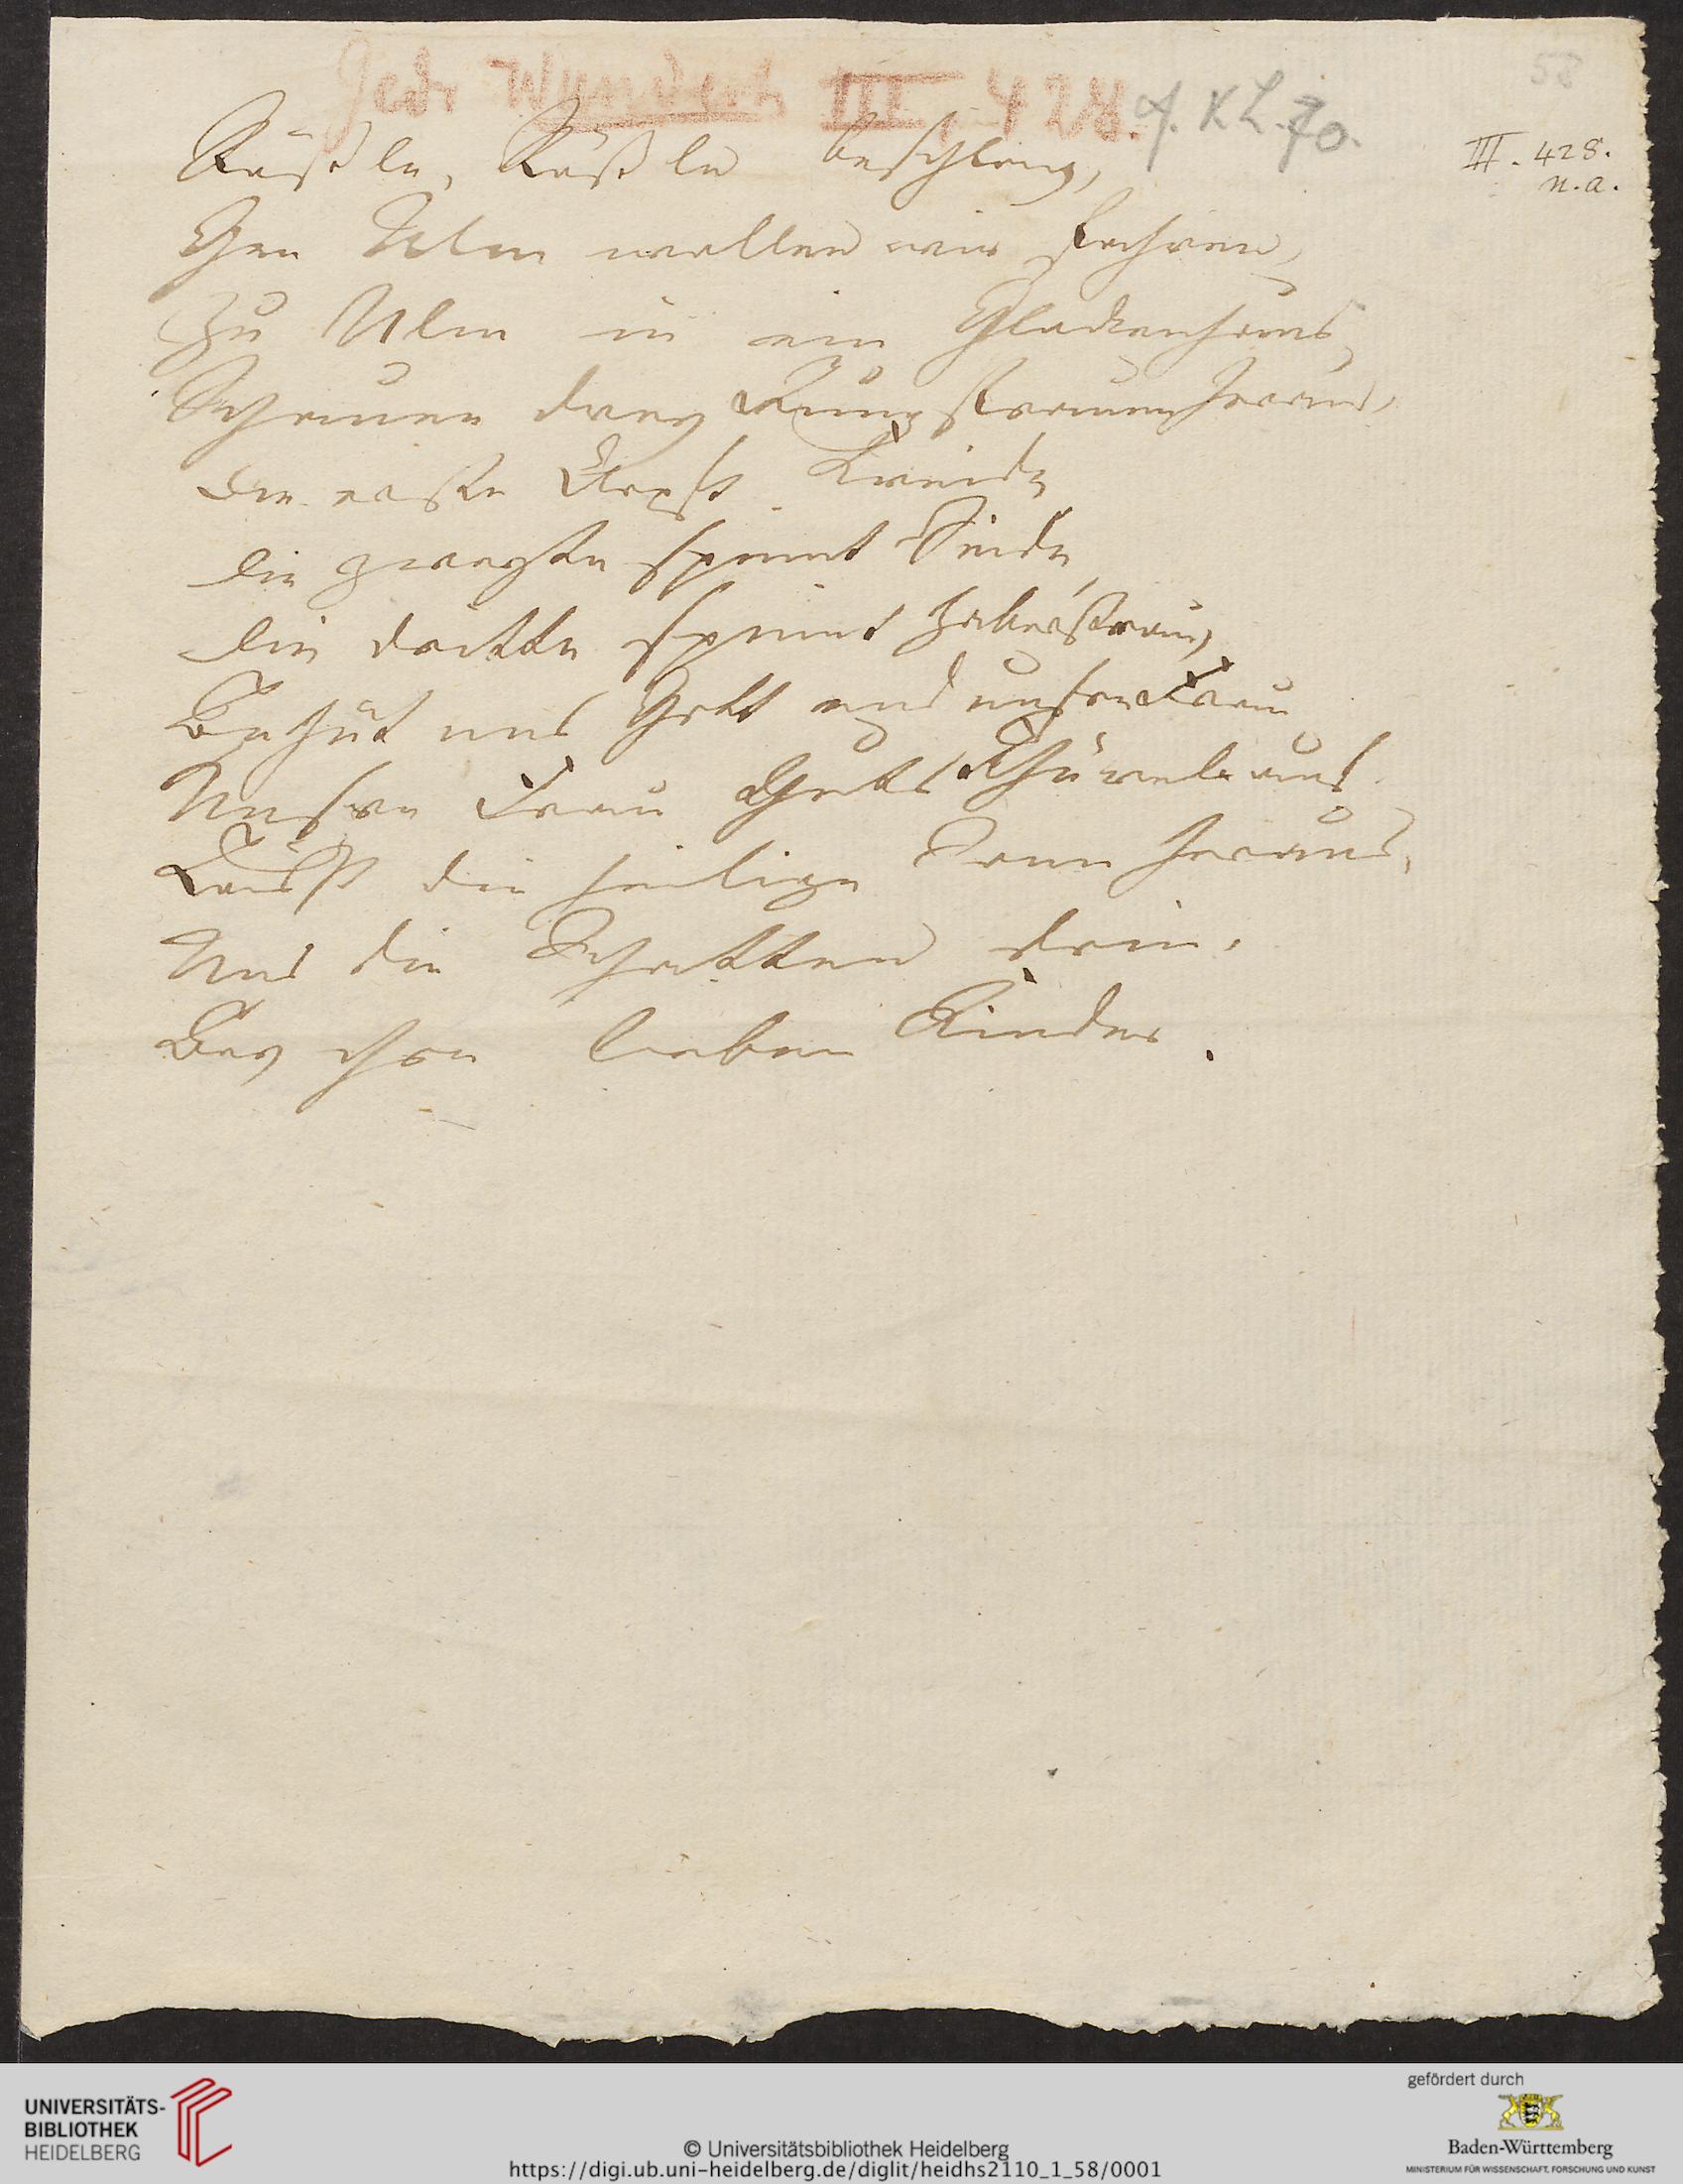 Gedr Wunderh III, 428. cf. KL 70.
58
III. 428.
n. a.
Rößle, Rößle beschlag,
Gen Ulm wollen wir fahren,
Zu Ulm in ein Glockenhaus,
Schauen drey Jungfrauen heraus,
die erste Kreide,
die zweyte spinnt Seide,
die dritte spinnt Haberstrau,
Behüt uns Gott und unsre Frau
Unsre Frau Geht Thürel aus
Läßt die heilige Sonn heraus,
Und die Schatten drin.
Bey ihren lieben Kinder.
UNIVERSITÄTS-
BIBLIOTHEK
HEIDELBERG
© Universitätsbibliothek Heidelberg
https://digi.ub.uni-heidelberg.de/diglit/heidhs2110_1_58/0001
gefördert durch
Baden-Württemberg
MINISTERIUM FÜR WISSENSCHAFT, FORSCHUNG UND KUNST